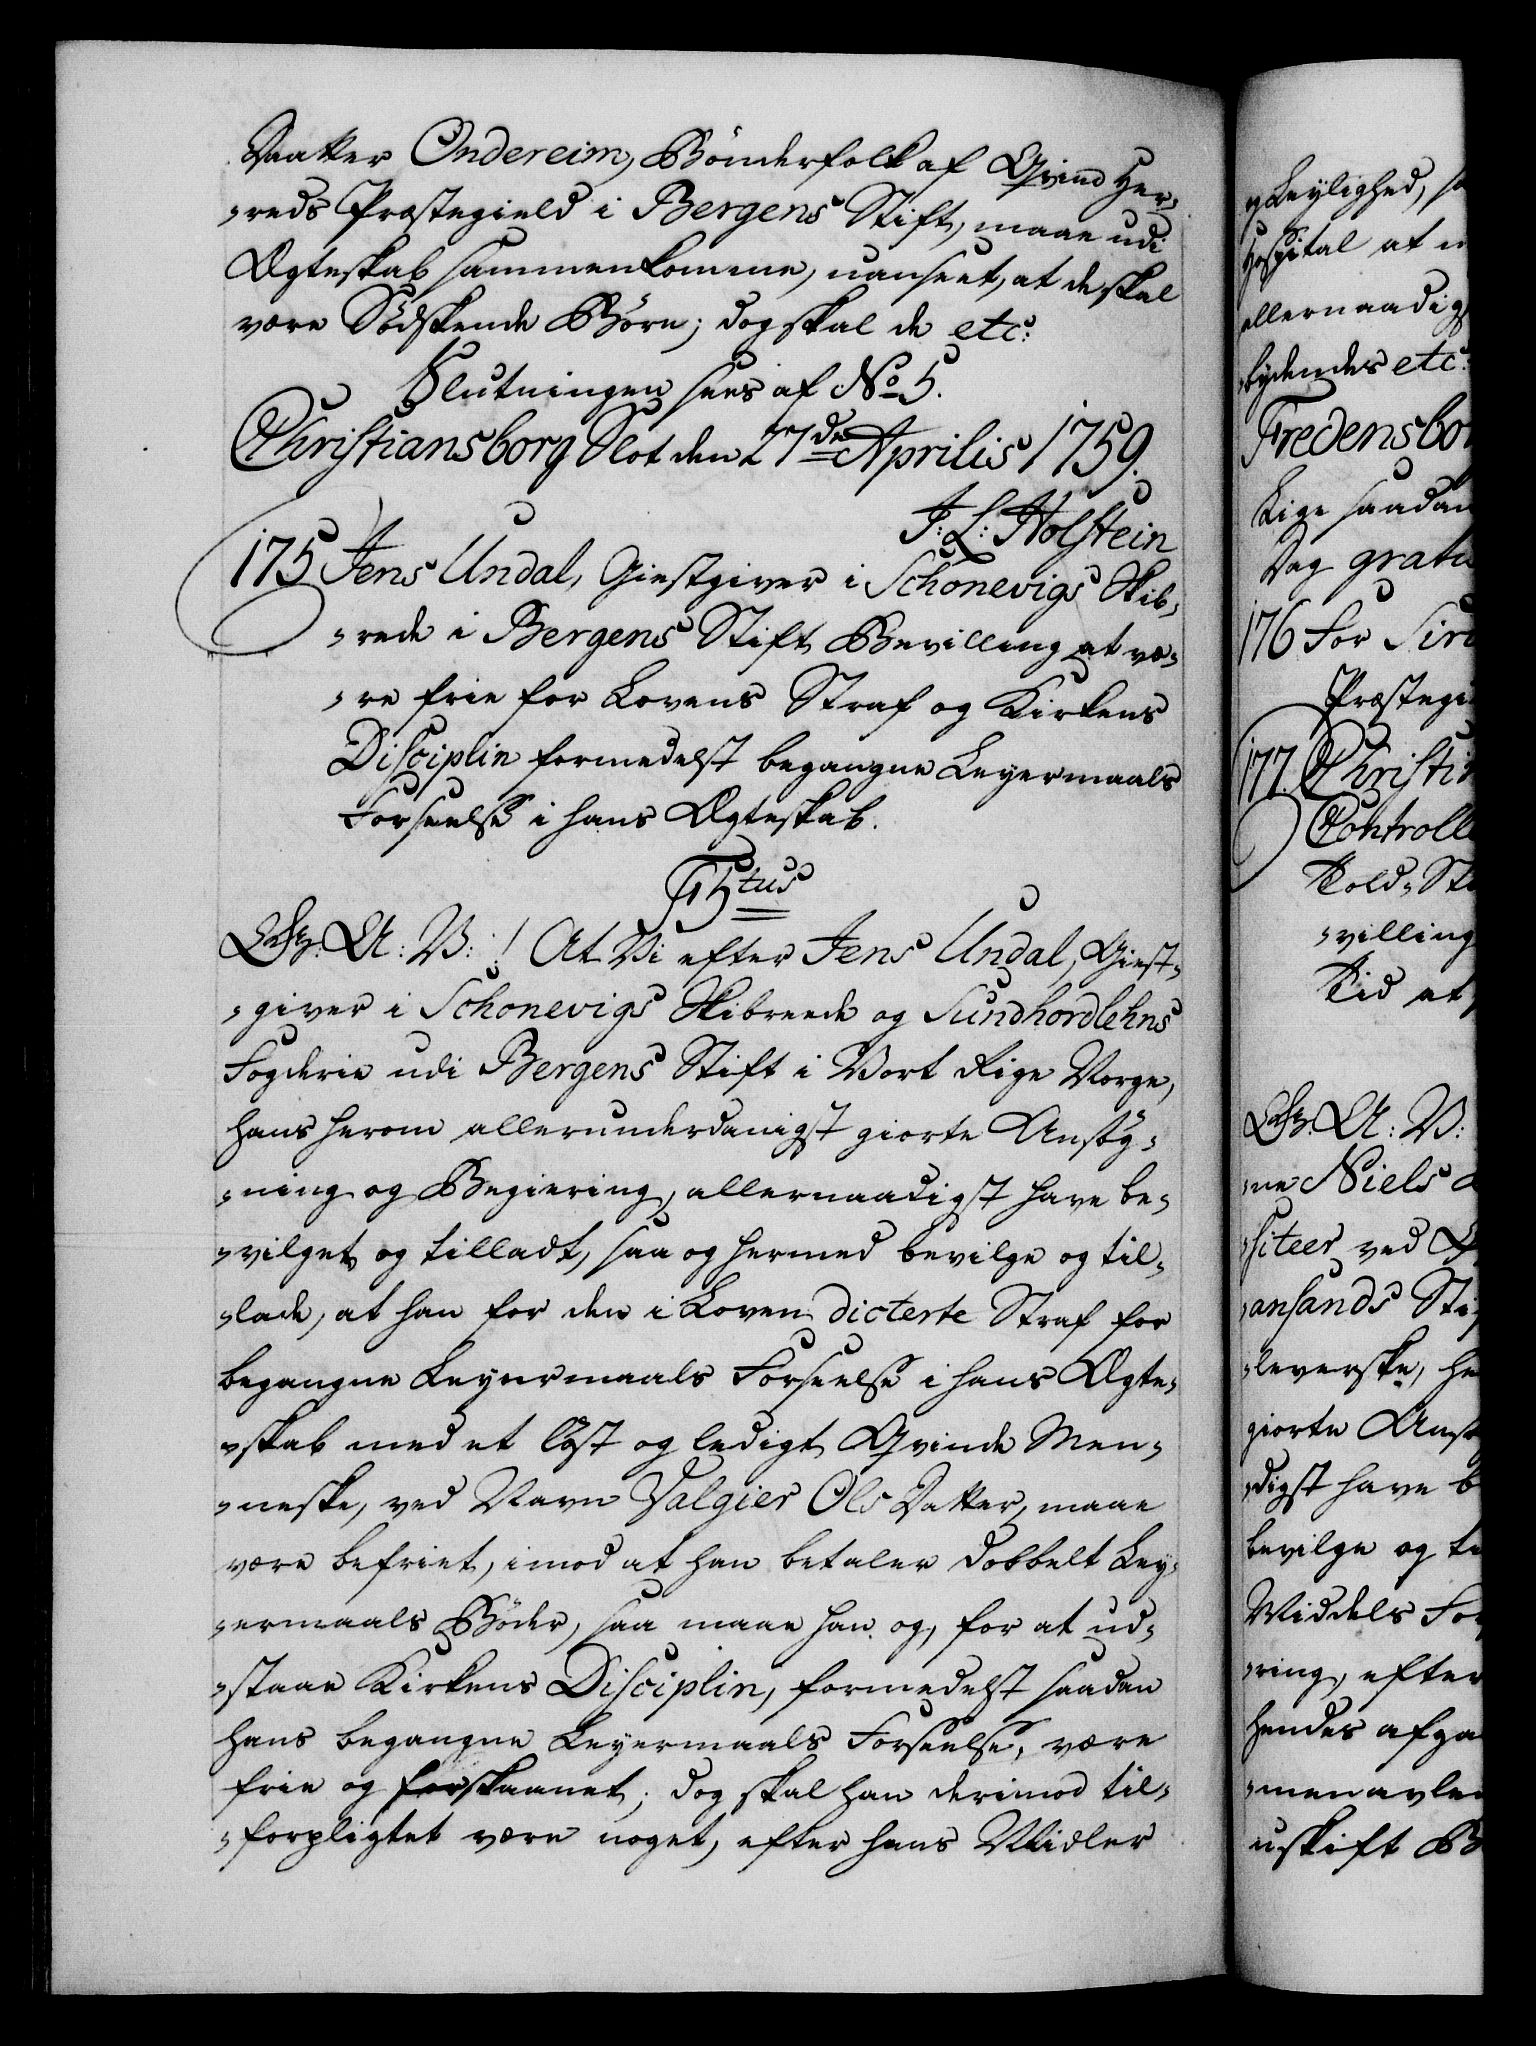 Daatter Ondereim, Bönderfolk af Qvind Her-
-reds Præstegield i Bergens Stift, maae udi
Ægteskab sammenkomme, uanseet, at de skal
være Södskende Börn; dog skal de etc:
Slutningen sees af No 5.
Christiansborg Slot den 27de Aprilis 1759.
J: L: Holstein
175 Jens Undal, Giestgiver i Schonevigs Skib-
-rede i Bergens Stift Bevilling at væ-
-re frie for Lovens Straf og Kirkens
Disciplin formedelst begangne Leyermaals
Forseelse i hans Ægteskab.
F 5tus
G: A: V: ! At Vi efter Jens Undal, Giest-
-giver i Schonevigs Skibreede og Sundhordlehns
Fogderie udi Bergens Stift i Vort Rige Norge,
hans herom allerunderdanigst giorte Ansøg-
-ning og Begiering, allernaadigst have be-
-vilget og tilladt, saa og hermed bevilge og til-
-lade, at han for den i Loven dicterte Straf for
begangne Leyermaals Forseelse i hans Ægte-
-skab med et løst og ledigt Qvinde Men-
-neske, ved Navn Valgier Ols Datter, maae
være befriet, imod at han betaler dobbelt Ley-
-ermaals Böder, saa maae han og, for at ud-
-staae Kirkens Disciplin, formedelst saadan
hans begangne Leyermaals Forseelse, være
frie og forskaanet; dog skal han derimod til-
-forpligtet være noget, efter hans Midler
og Leylighed,
Hospital at
allernaadigst
-bydendes etc:
Fredensbor
Lige saadan
Dag grati
176 For Siri
Præstegi
177. Christi
Controll
Told-St
-villing
Tid at
G: A: V:
-ne Niels
-siteer ved
-ansands Sti
-leverske, he
giorte Ans
-digst have b
bevilge og ti
Middels For
-ring, efter
hendes afga
-men avle
uskift B